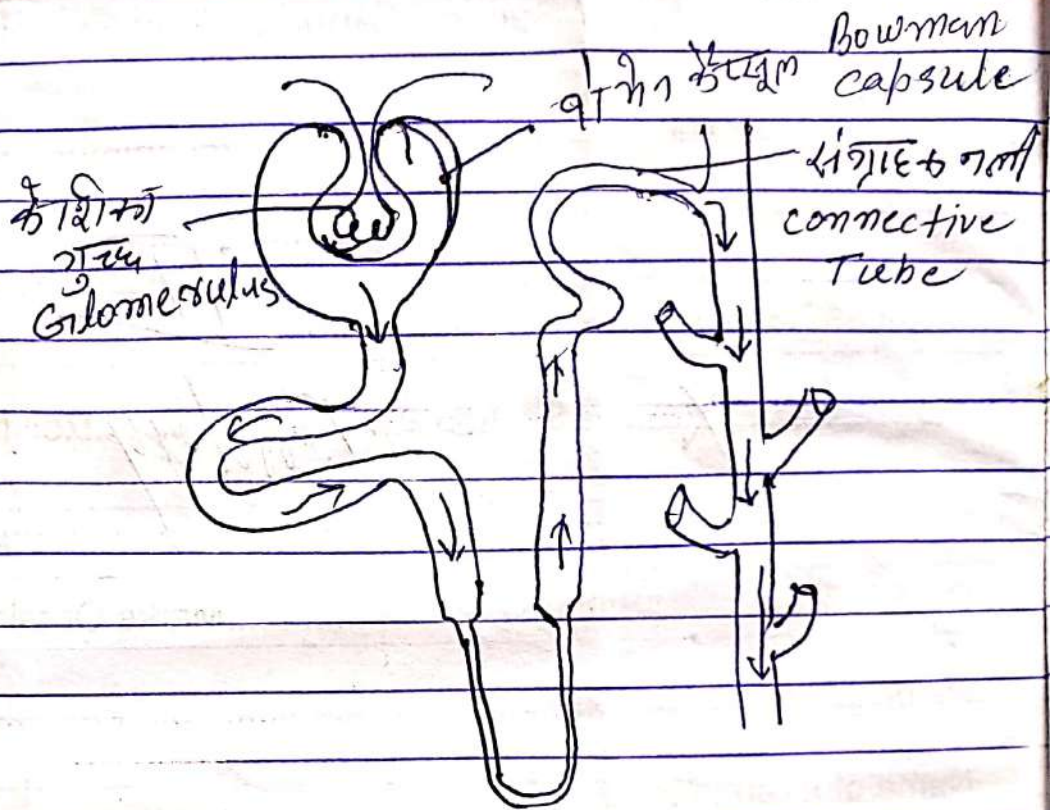 Bowman
capsule
संग्राहक नली
connective
Tube
गुच्छ
Glomerulus